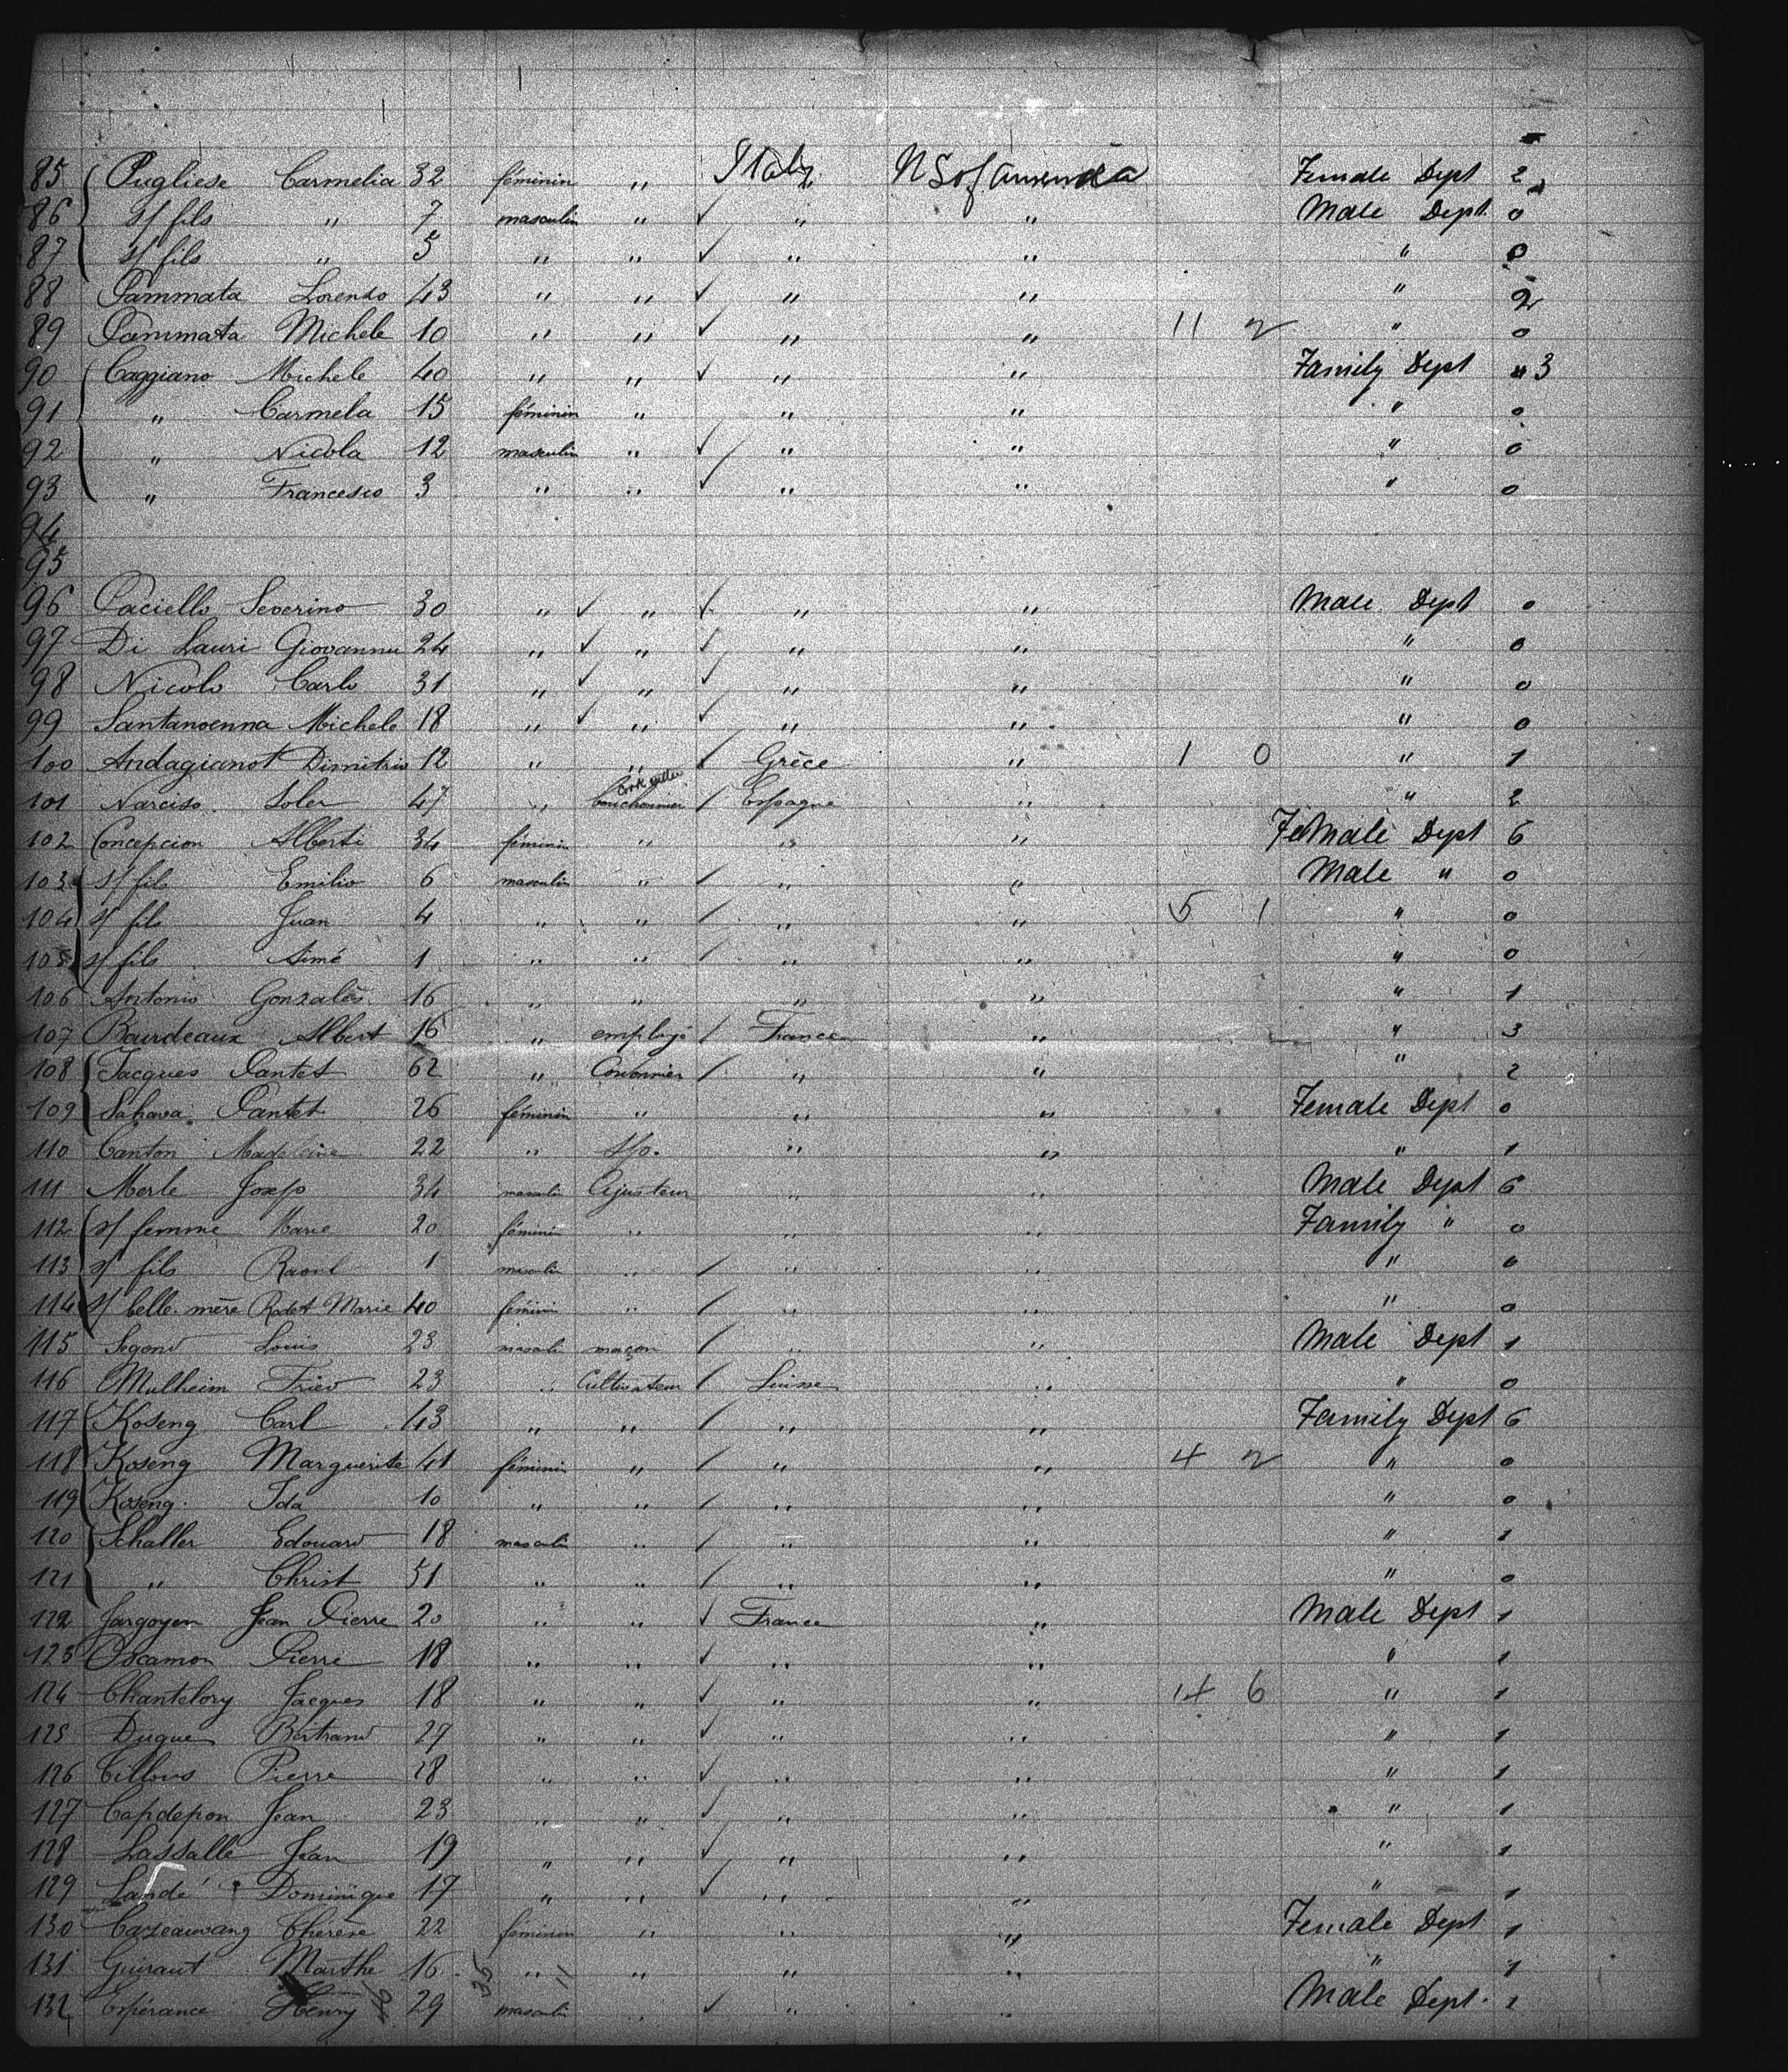 85 Pugliese Carmelia 32 féminin " Italy U S of America Female Dept 2
86 s/ fils " 7 masculin " ✓ " " Male Dept. 0
87 s/ fils " 5 " " ✓ " " " 0
88 Pammata Lorenzo 43 " " ✓ " " " 2
89 Pammata Michele 10 " " ✓ " " 11 2 " 0
90 Caggiano Michele 40 " " ✓ " " Family Dept 3
91 " Carmela 15 féminin " " " " 0
92 " Nicola 12 masculin " ✓ " " " 0
93 " Francesco 3 " " ✓ " " " 0
94
95
96 Paciello Severino 30 " ✓ " ✓ " " Male Dept 0
97 Di Lauri Giovanni 24 " ✓ " ✓ " " " 0
98 Nicolo Carlo 31 " ✓ " ✓ " " " 0
99 Santanoenna Michele 18 " ✓ " ✓ " " " 0
100 Andagianot Dimitrio 12 " " ✓ Grèce " 1 0 " 1
101 Narciso Soler 47 " bouchonnier / Espagne " " 2
102 Concepcion Alberti 34 féminin " " " Female Dept 6
103 s/ fils Emilio 6 masculin " / " " Male " 0
104 s/ fils Juan 4 " " / " " 5 1 " 0
105 s/ fils Aimé 1 " " / " " " 0
106 Antonio Gonzalès 16 " " " " " 1
107 Bourdeaux Albert 16 " employé / France " " 3
108 Jacques Pantet 62 " Cordonnier / " " " 2
109 Sahara Pantet 26 féminin " " " Female Dept 0
110 Canton Madeleine 22 " s/p. " " " 1
111 Merle Josep 34 masculin Ajusteur " " Male Dept 6
112 s/ femme Marie 20 féminin " " " Family " 0
113 s/ fils Raoul 1 masculin " / " " " 0
114 s/ belle-mère Rodet Marie 40 féminin " / " " " 0
115 Segond Louis 23 masculin maçon / " " Male Dept 1
116 Mulheim Fried 23 " Cultivateur / Suisse " " 0
117 Koseng Carl 43 " " / " " Family Dept 6
118 Koseng Marguerite 41 féminin " / " " 4 2 " 0
119 Koseng Ida 10 " " / " " " 0
120 Schaller Edouard 18 masculin " / " " " 1
121 " Christ 51 " " / " " " 0
122 Jargoyen Jean Pierre 20 " " ✓ France " Male Dept 1
123 Pocamon Pierre 18 " " ✓ " " " 1
124 Chantelory Jacques 18 " " ✓ " " 14 6 " 1
125 Dugues Bertrand 27 " " ✓ " " " 1
126 Cillous Pierre 28 " " ✓ " " " 1
127 Capdepon Jean 23 " " ✓ " " " 1
128 Lassalle Jean 19 " " ✓ " " " 1
129 Landé Dominique 17 " " ✓ " " " 1
130 Thérèse 22 féminin " " " Female Dept 1
131 Guiraut Marthe 16 " " " " " 1
132 Espérance Henry 29 masculin " ✓ " " Male Dept. 1